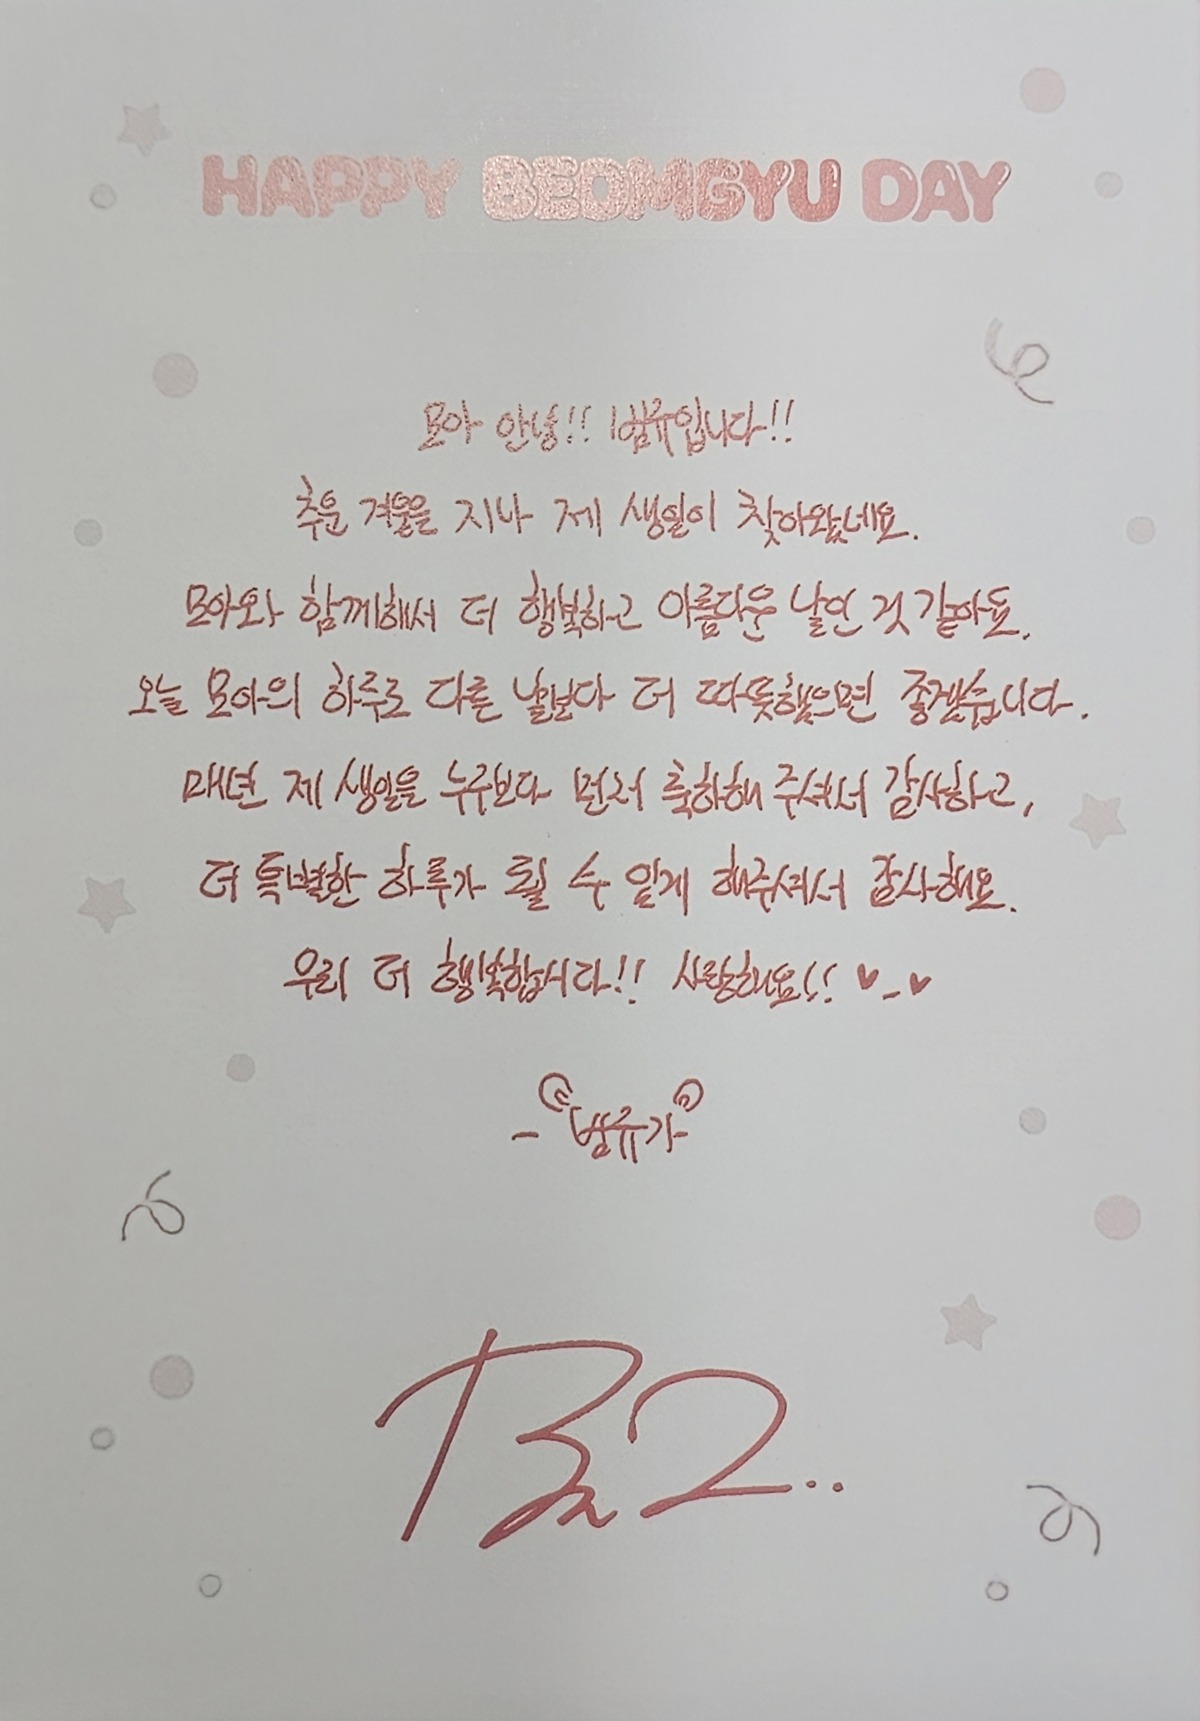 HAPPY BEOMGYU DAY
모아 안녕!! 범규입니다!!
추운 겨울을 지나 제 생일이 찾아왔네요.
모아와 함께해서 더 행복하고 아름다운 날인 것 같아요.
오늘 모아의 하루도 다른 날보다 더 따뜻했으면 좋겠습니다.
매년 제 생일을 누구보다 먼저 축하해 주셔서 감사하고,
더 특별한 하루가 될 수 있게 해주셔서 감사해요.
우리 더 행복합시다!! 사랑해요!! ♥_♥
- 범규가 -